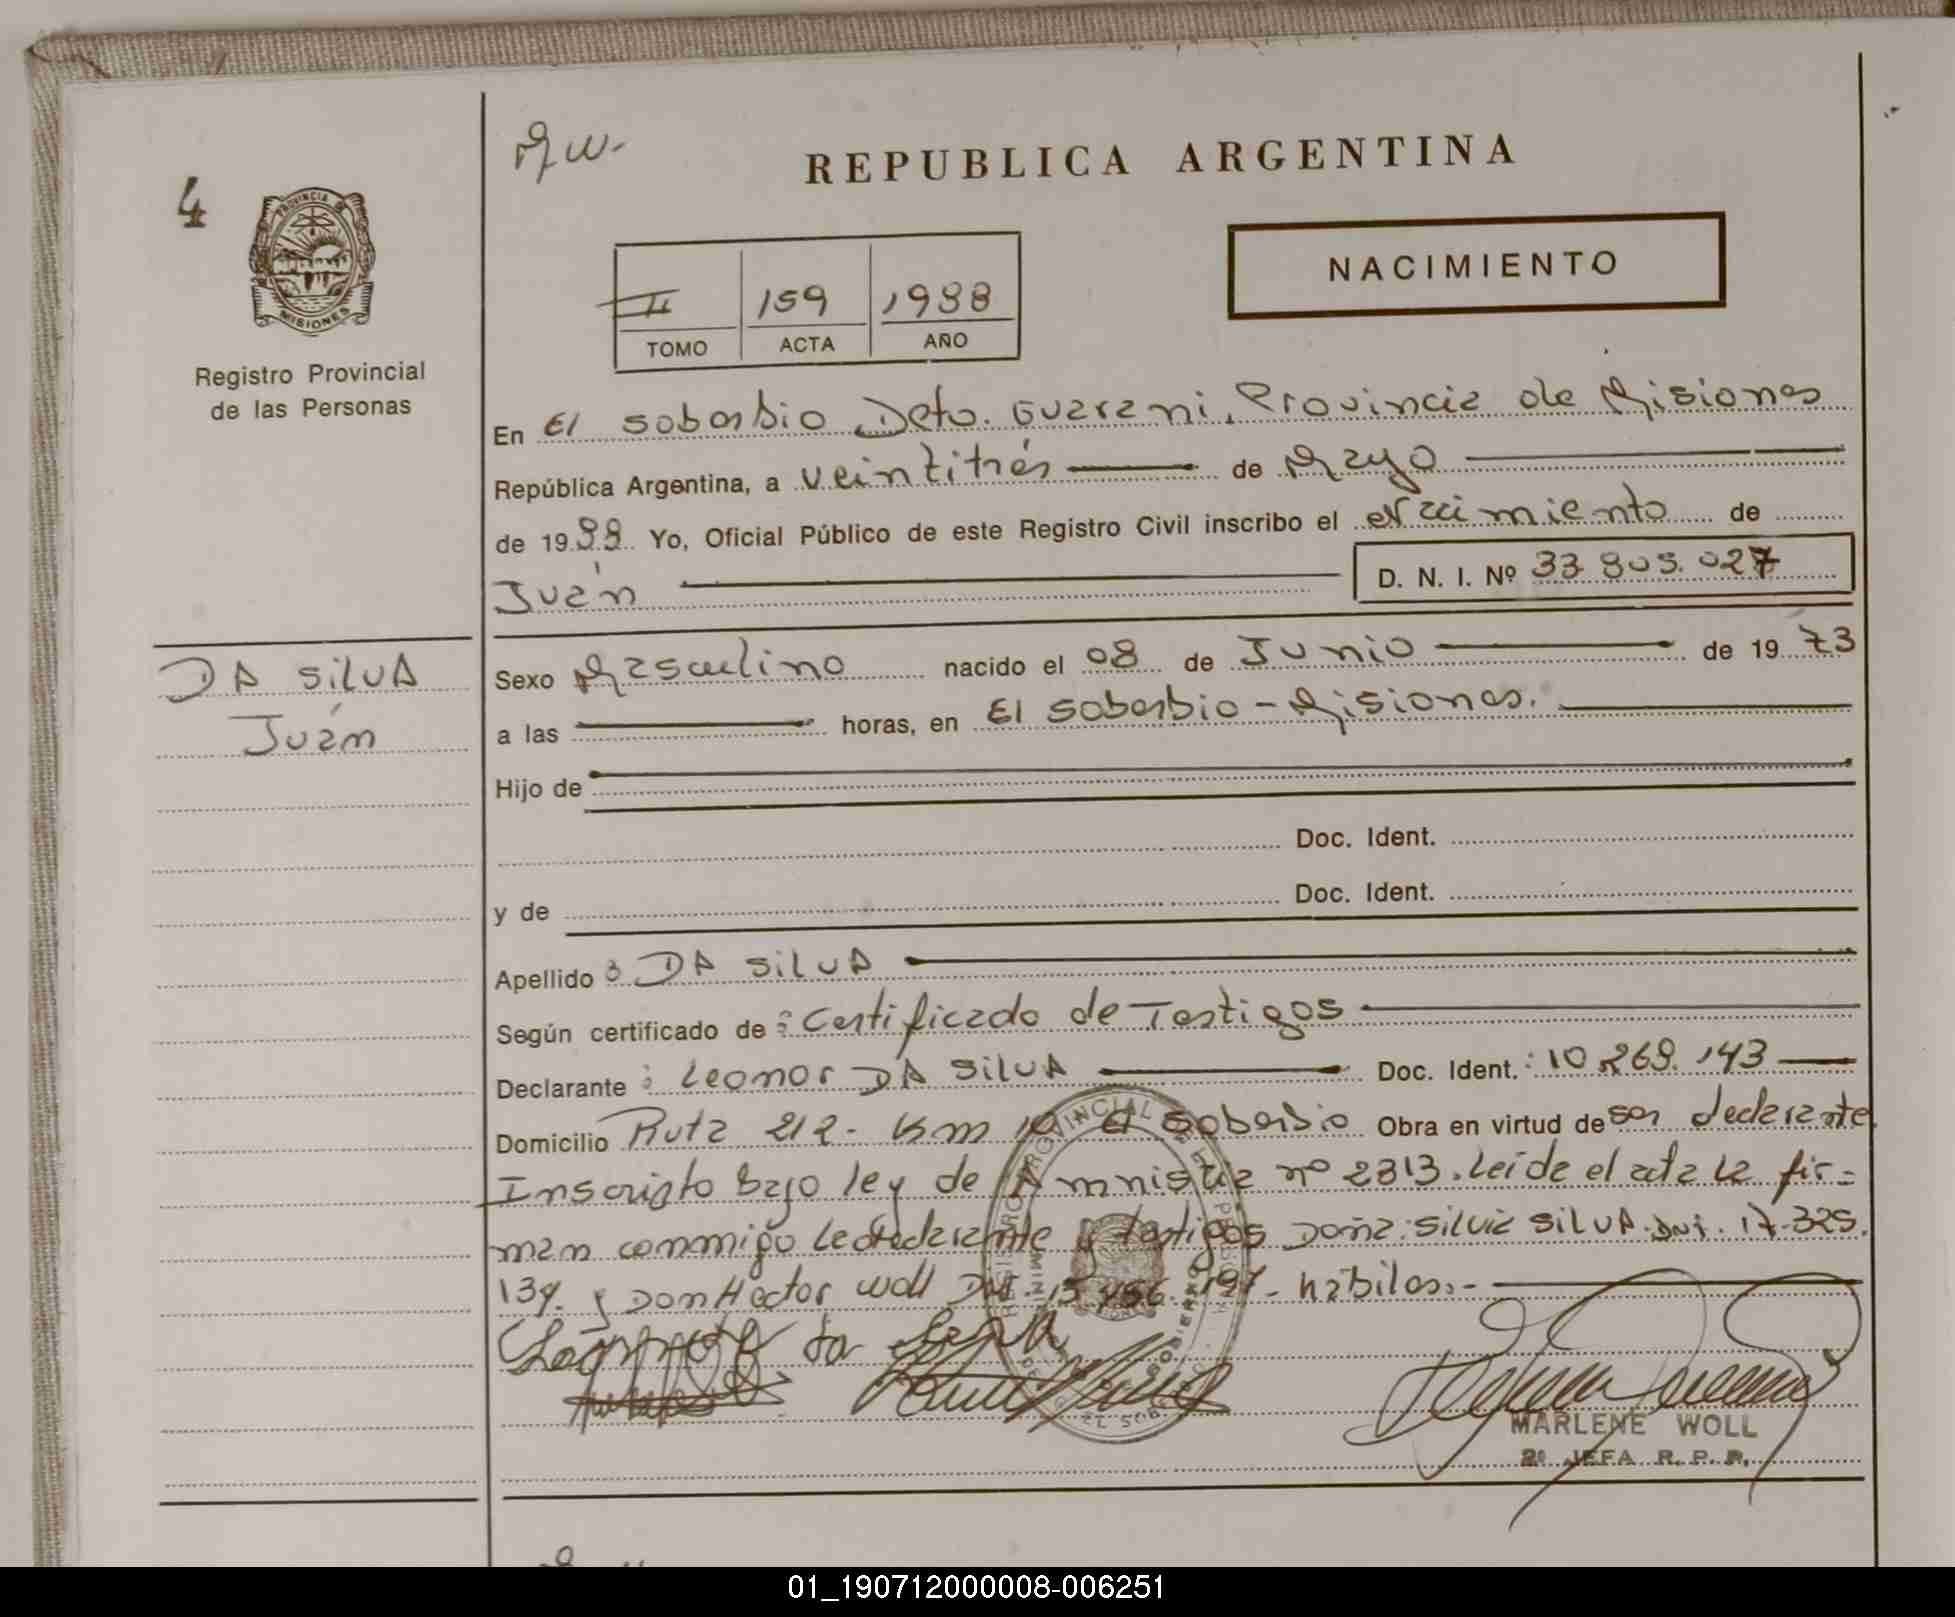 M w.
REPUBLICA ARGENTINA
4
PROVINCIA DE
MISIONES
NACIMIENTO
II 159 1988
TOMO ACTA AÑO
Registro Provincial
de las Personas
En El Soberbio Dpto. Guarani, Provincia de Misiones
República Argentina, a veintitrés de Mayo
de 1988 Yo, Oficial Público de este Registro Civil inscribo el Nacimiento de
Juán D. N. I. Nº 33.805.027
DA SILVA
Juán
Sexo Masculino nacido el 08 de Junio de 1973
a las horas, en El Soberbio - Misiones.
Hijo de
Doc. Ident.
y de Doc. Ident.
Apellido: DA SILVA
Según certificado de: Certificado de Testigos
Declarante: Leonor DA SILVA Doc. Ident.: 10.269.143
Domicilio Ruta 212 - Km 10 El Soberbio Obra en virtud de ser declarante.
Inscripto bajo ley de Amnistia nº 2313. Leida el acta la fir=
man conmigo la declarante y testigos Doña: Silvia SILVA. DNI. 17.325.
139. y Don Hector Woll DNI. 197 - hábiles.-
REGISTRO PROVINCIAL DE LAS PERSONAS
MISIONES
EL SOBERBIO
MARLENE WOLL
2º JEFA R. P. P.
01_190712000008-006251